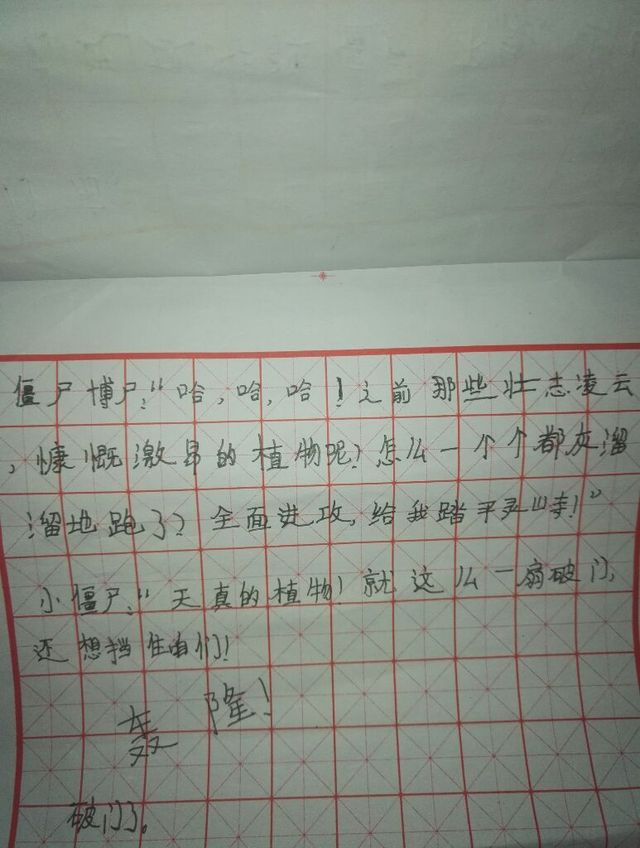 僵尸博尸：“哈，哈，哈！之前那些壮志凌云
，慷慨激昂的植物呢？怎么一个个都灰溜
溜地跑了？全面进攻，给我踏平灵山寺！”
小僵尸：“天真的植物！就这么一扇破门，
还想挡住咱们！
轰隆！
破门了。